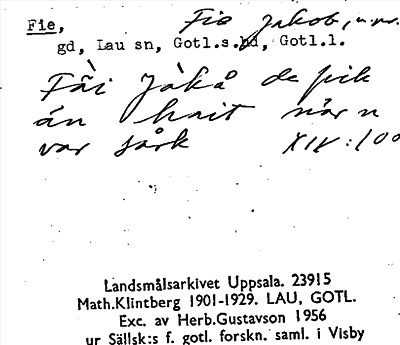 Fie, Fie Jakob,
gd, Lau sn, Gotl.s.hd, Gotl.l.
Fài Jàkå de fick
án hait når n
var sårk XIV:100
Landsmålsarkivet Uppsala. 23915
Math.Klintberg 1901-1929. LAU, GOTL.
Exc. av Herb.Gustavson 1956
ur Sällsk:s f. gotl. forskn. saml. i Visby